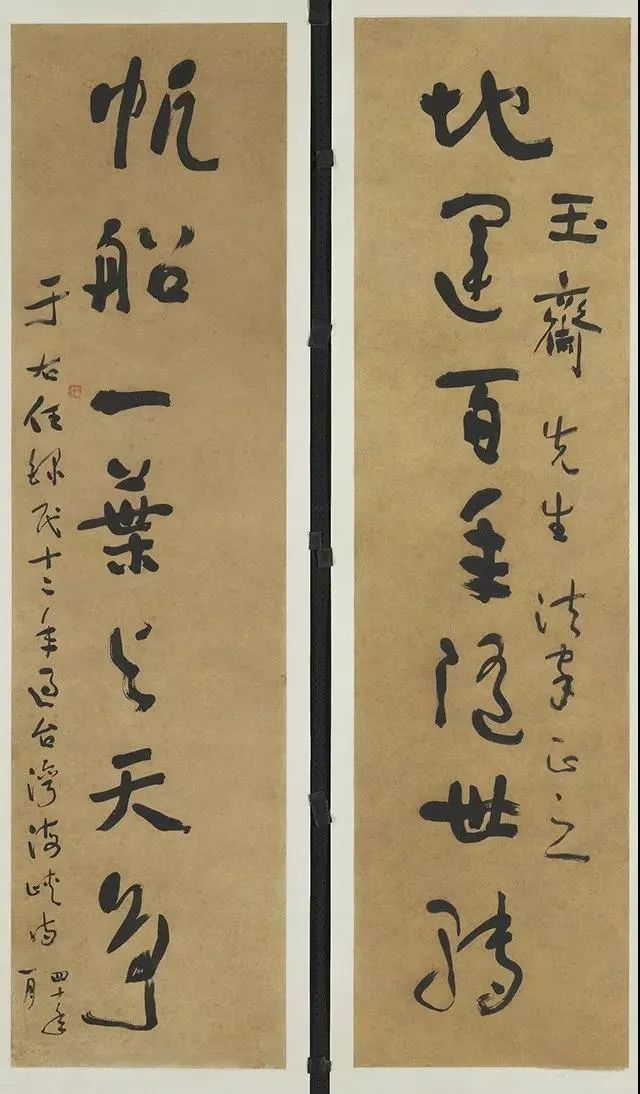 地運百年隨世轉
玉齋先生法家正之
帆船一葉與天爭
于右任錄民十二年過台灣海峽
四十年
一月